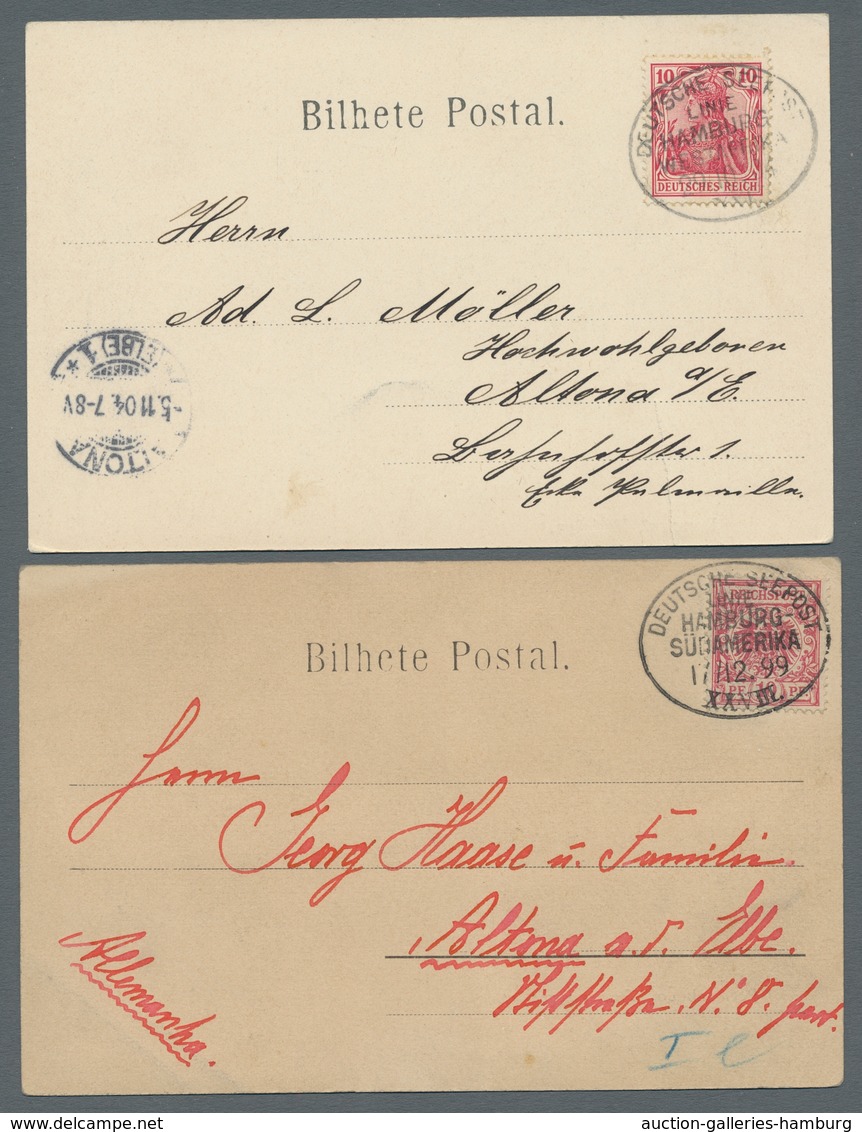 Bilhete Postal.
10 10
DEUTSCHES REICH
DEUTSCHE
LINIE
HAMBURG
Herrn
Ad. L. Möller
Hochwohlgeboren
Altona a/E.
Bahnhofstr 1.
Ecke Palmaille.
ALTONA
(ELBE) 1 *
-5.11.04. 7-8V.
Bilhete Postal.
DEUTSCHE SEEPOST
LINIE
HAMBURG-
SÜDAMERIKA
12.99
XXVIII.
Herrn
Georg Haase u. Familie
Altona a. d. Elbe.
No 8. part.
Allemanha.
auction-galleries-hamburg